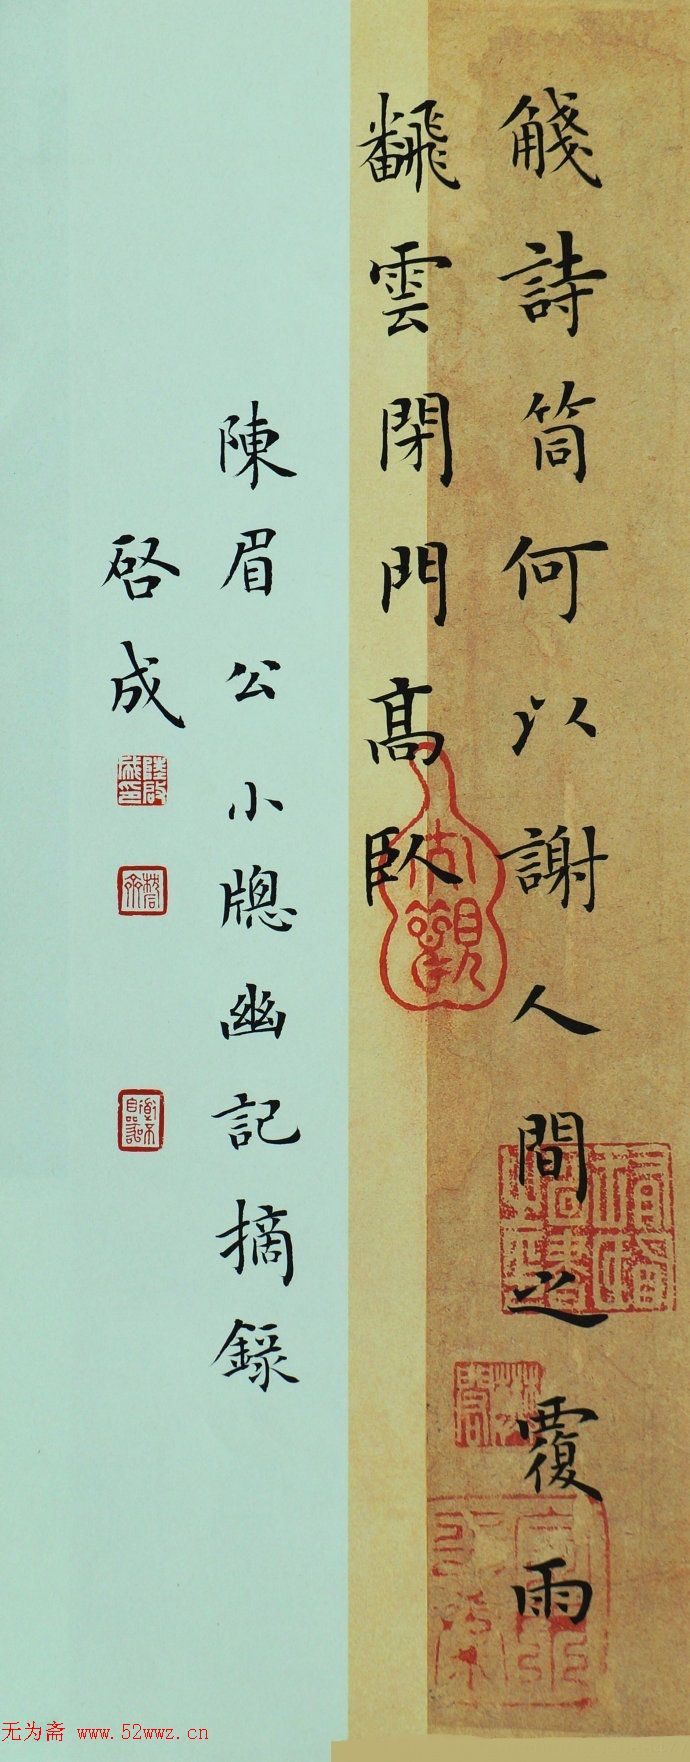 詩筒何以謝人間之覆雨
飜雲閉門高臥
陳眉公小牕幽記摘錄
啓成
无为斋 www.52wwz.cn